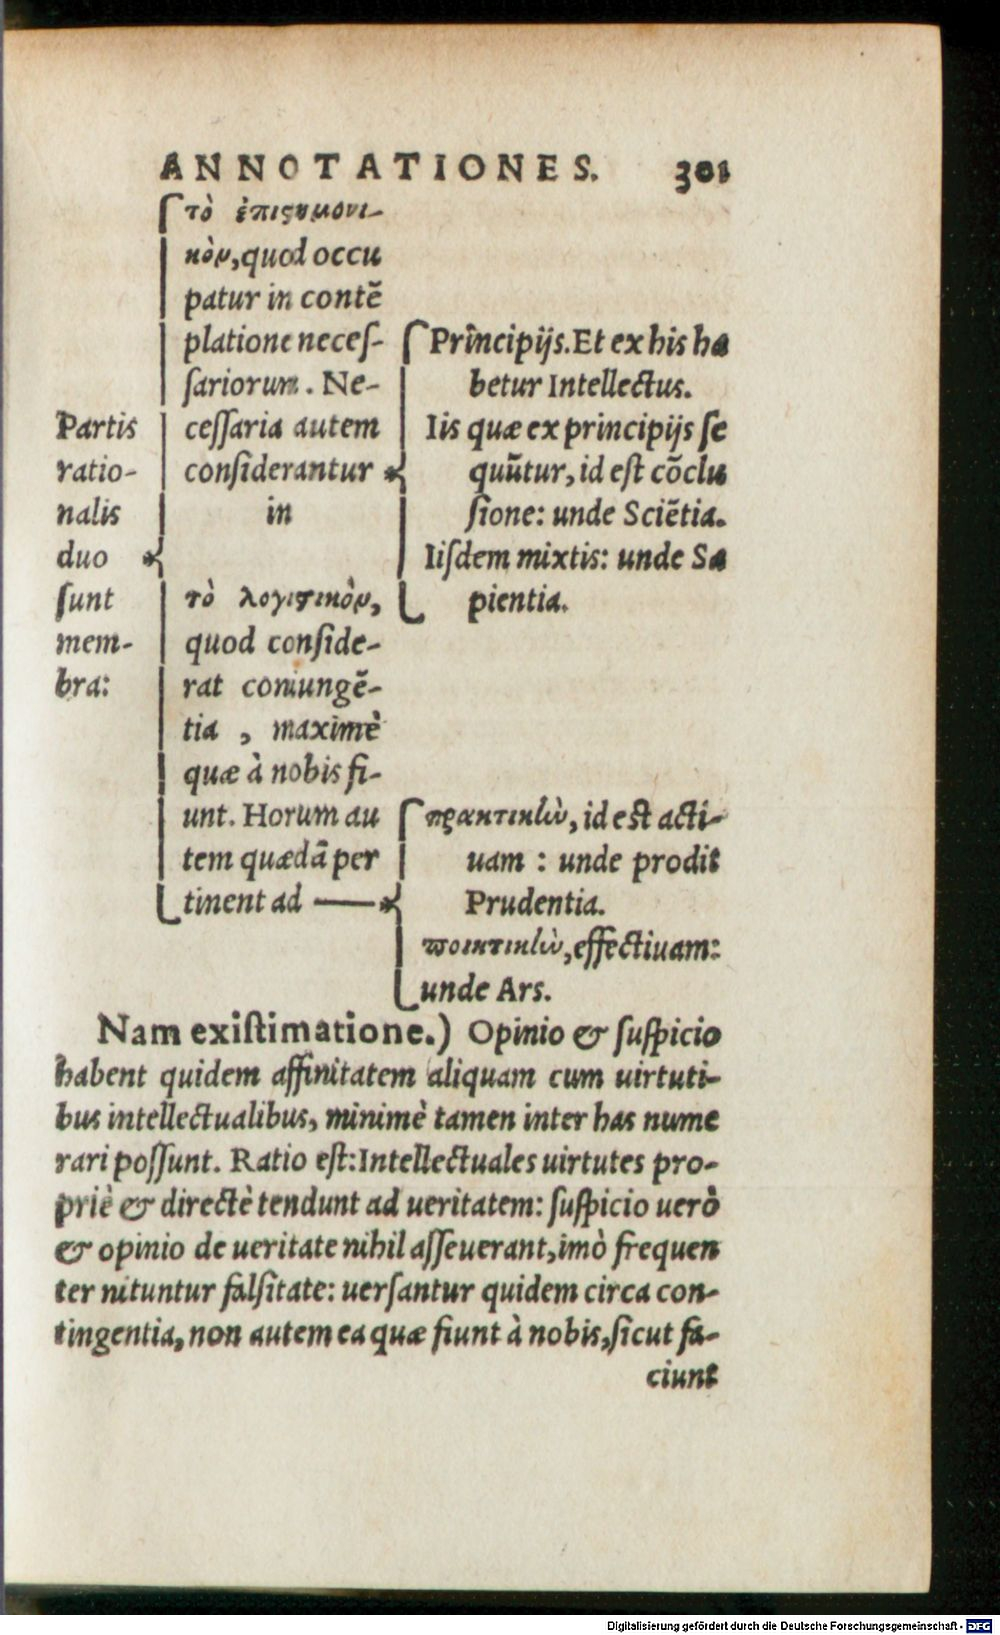 ANNOTATIONES. 301
Partis
ratio-
nalis
duo
sunt
mem-
bra:
τὸ ἐπιϛημονι-
κὸν, quod occu
patur in contẽ
platione neceſ-
ſariorum. Ne-
ceſſaria autem
conſiderantur
in
Principijs. Et ex his ha
betur Intellectus.
Iis quæ ex principijs ſe
quũtur, id eſt cõclu
ſione: unde Sciẽtia.
Iiſdem mixtis: unde Sa
pientia.
τὸ λογιϛικὸν,
quod conſide-
rat coniungẽ-
tia, maximè
quæ à nobis fi-
unt. Horum au
tem quædã per
tinent ad
πρακτικὴν, id eſt acti-
uam: unde prodit
Prudentia.
ποιητικὴν, effectiuam:
unde Ars.
Nam exiſtimatione.) Opinio & ſuſpicio
habent quidem affinitatem aliquam cum uirtuti-
bus intellectualibus, minimè tamen inter has nume
rari poſſunt. Ratio eſt: Intellectuales uirtutes pro-
priè & directè tendunt ad ueritatem: ſuſpicio uerò
& opinio de ueritate nihil aſſeuerant, imò frequen
ter nituntur falſitate: uerſantur quidem circa con-
tingentia, non autem ea quæ fiunt à nobis, ſicut fa-
ciunt
Digitalisierung gefördert durch die Deutsche Forschungsgemeinschaft - DFG